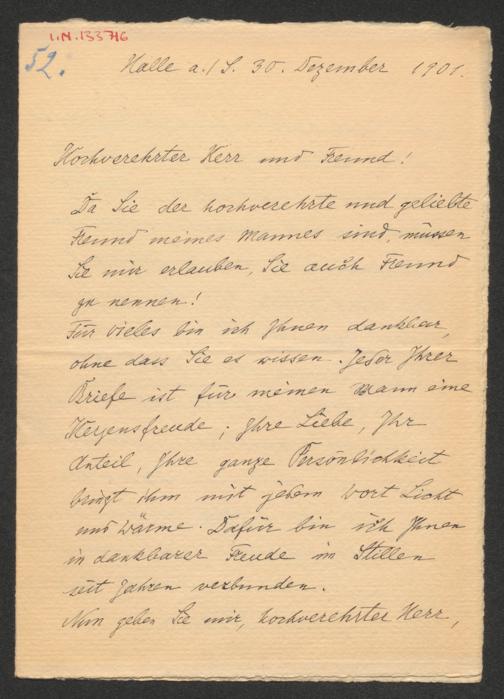 I.N. 133716
52.
Halle a./S. 30. Dezember 1901.
Hochverehrter Herr und Freund!
Da Sie der hochverehrte und geliebte
Freund meines Mannes sind, müssen
Sie mir erlauben, Sie auch Freund
zu nennen!
Für vieles bin ich Ihnen dankbar,
ohne dass Sie es wissen. Jeder Ihrer
Briefe ist für meinen Mann eine
Herzensfreude; Ihre Liebe, Ihr
Anteil, Ihre ganze Persönlichkeit
bringt ihm mit jedem Wort Licht
und Wärme. Dafür bin ich Ihnen
in dankbarer Freude im Stillen
seit Jahren verbunden.
Nun geben Sie mir, hochverehrter Herr,